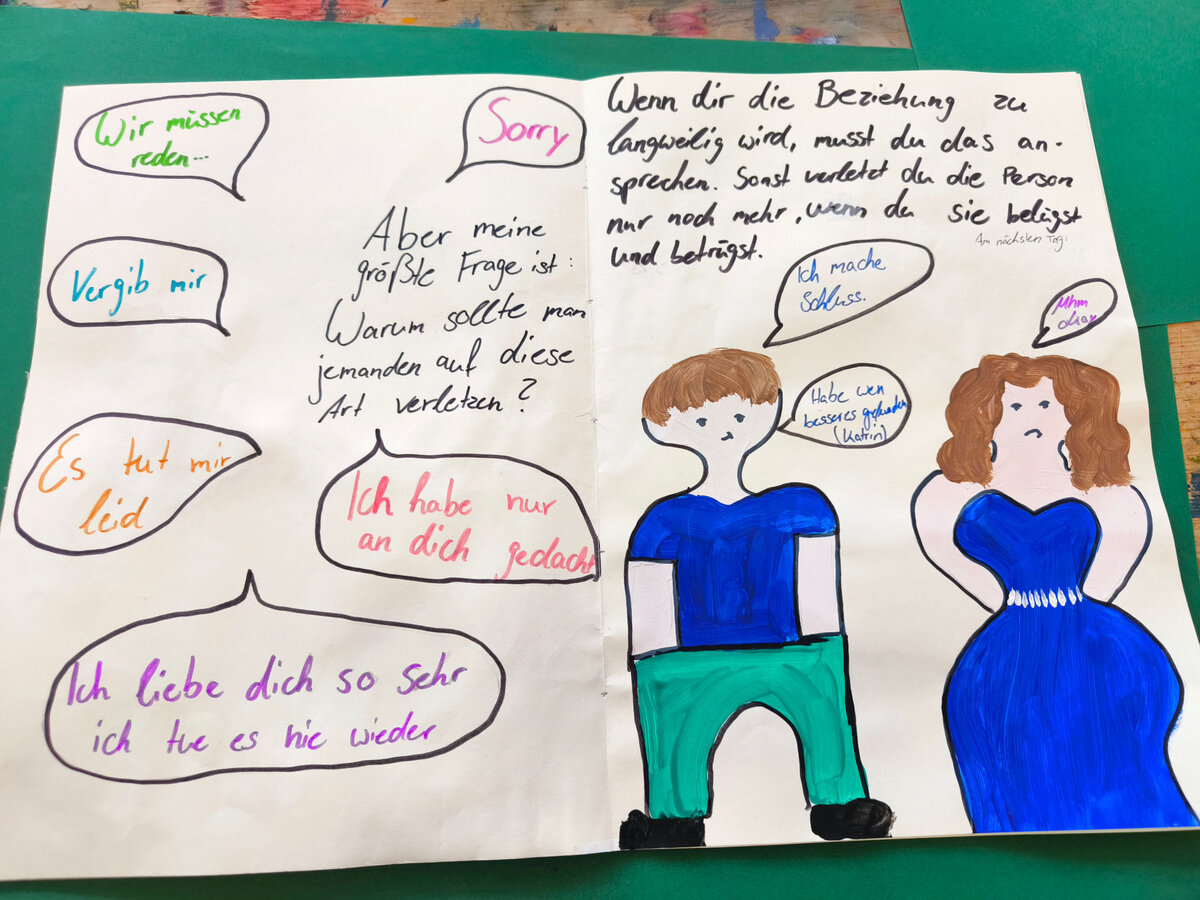 Wir müssen
reden...
Sorry
Vergib mir
Aber meine
größte Frage ist:
Warum sollte man
jemanden auf diese
Art verletzen?
Es tut mir
leid
Ich habe nur
an dich gedacht
Ich liebe dich so sehr
ich tue es nie wieder
Wenn dir die Beziehung zu
langweilig wird, musst du das an-
sprechen. Sonst verletzt du die Person
nur noch mehr, wenn du sie belügst
und betrügst.
Am nächsten Tag:
Ich mache
Schluss.
Mhm
okay
Habe wen
besseres gefunden
(Katrin)